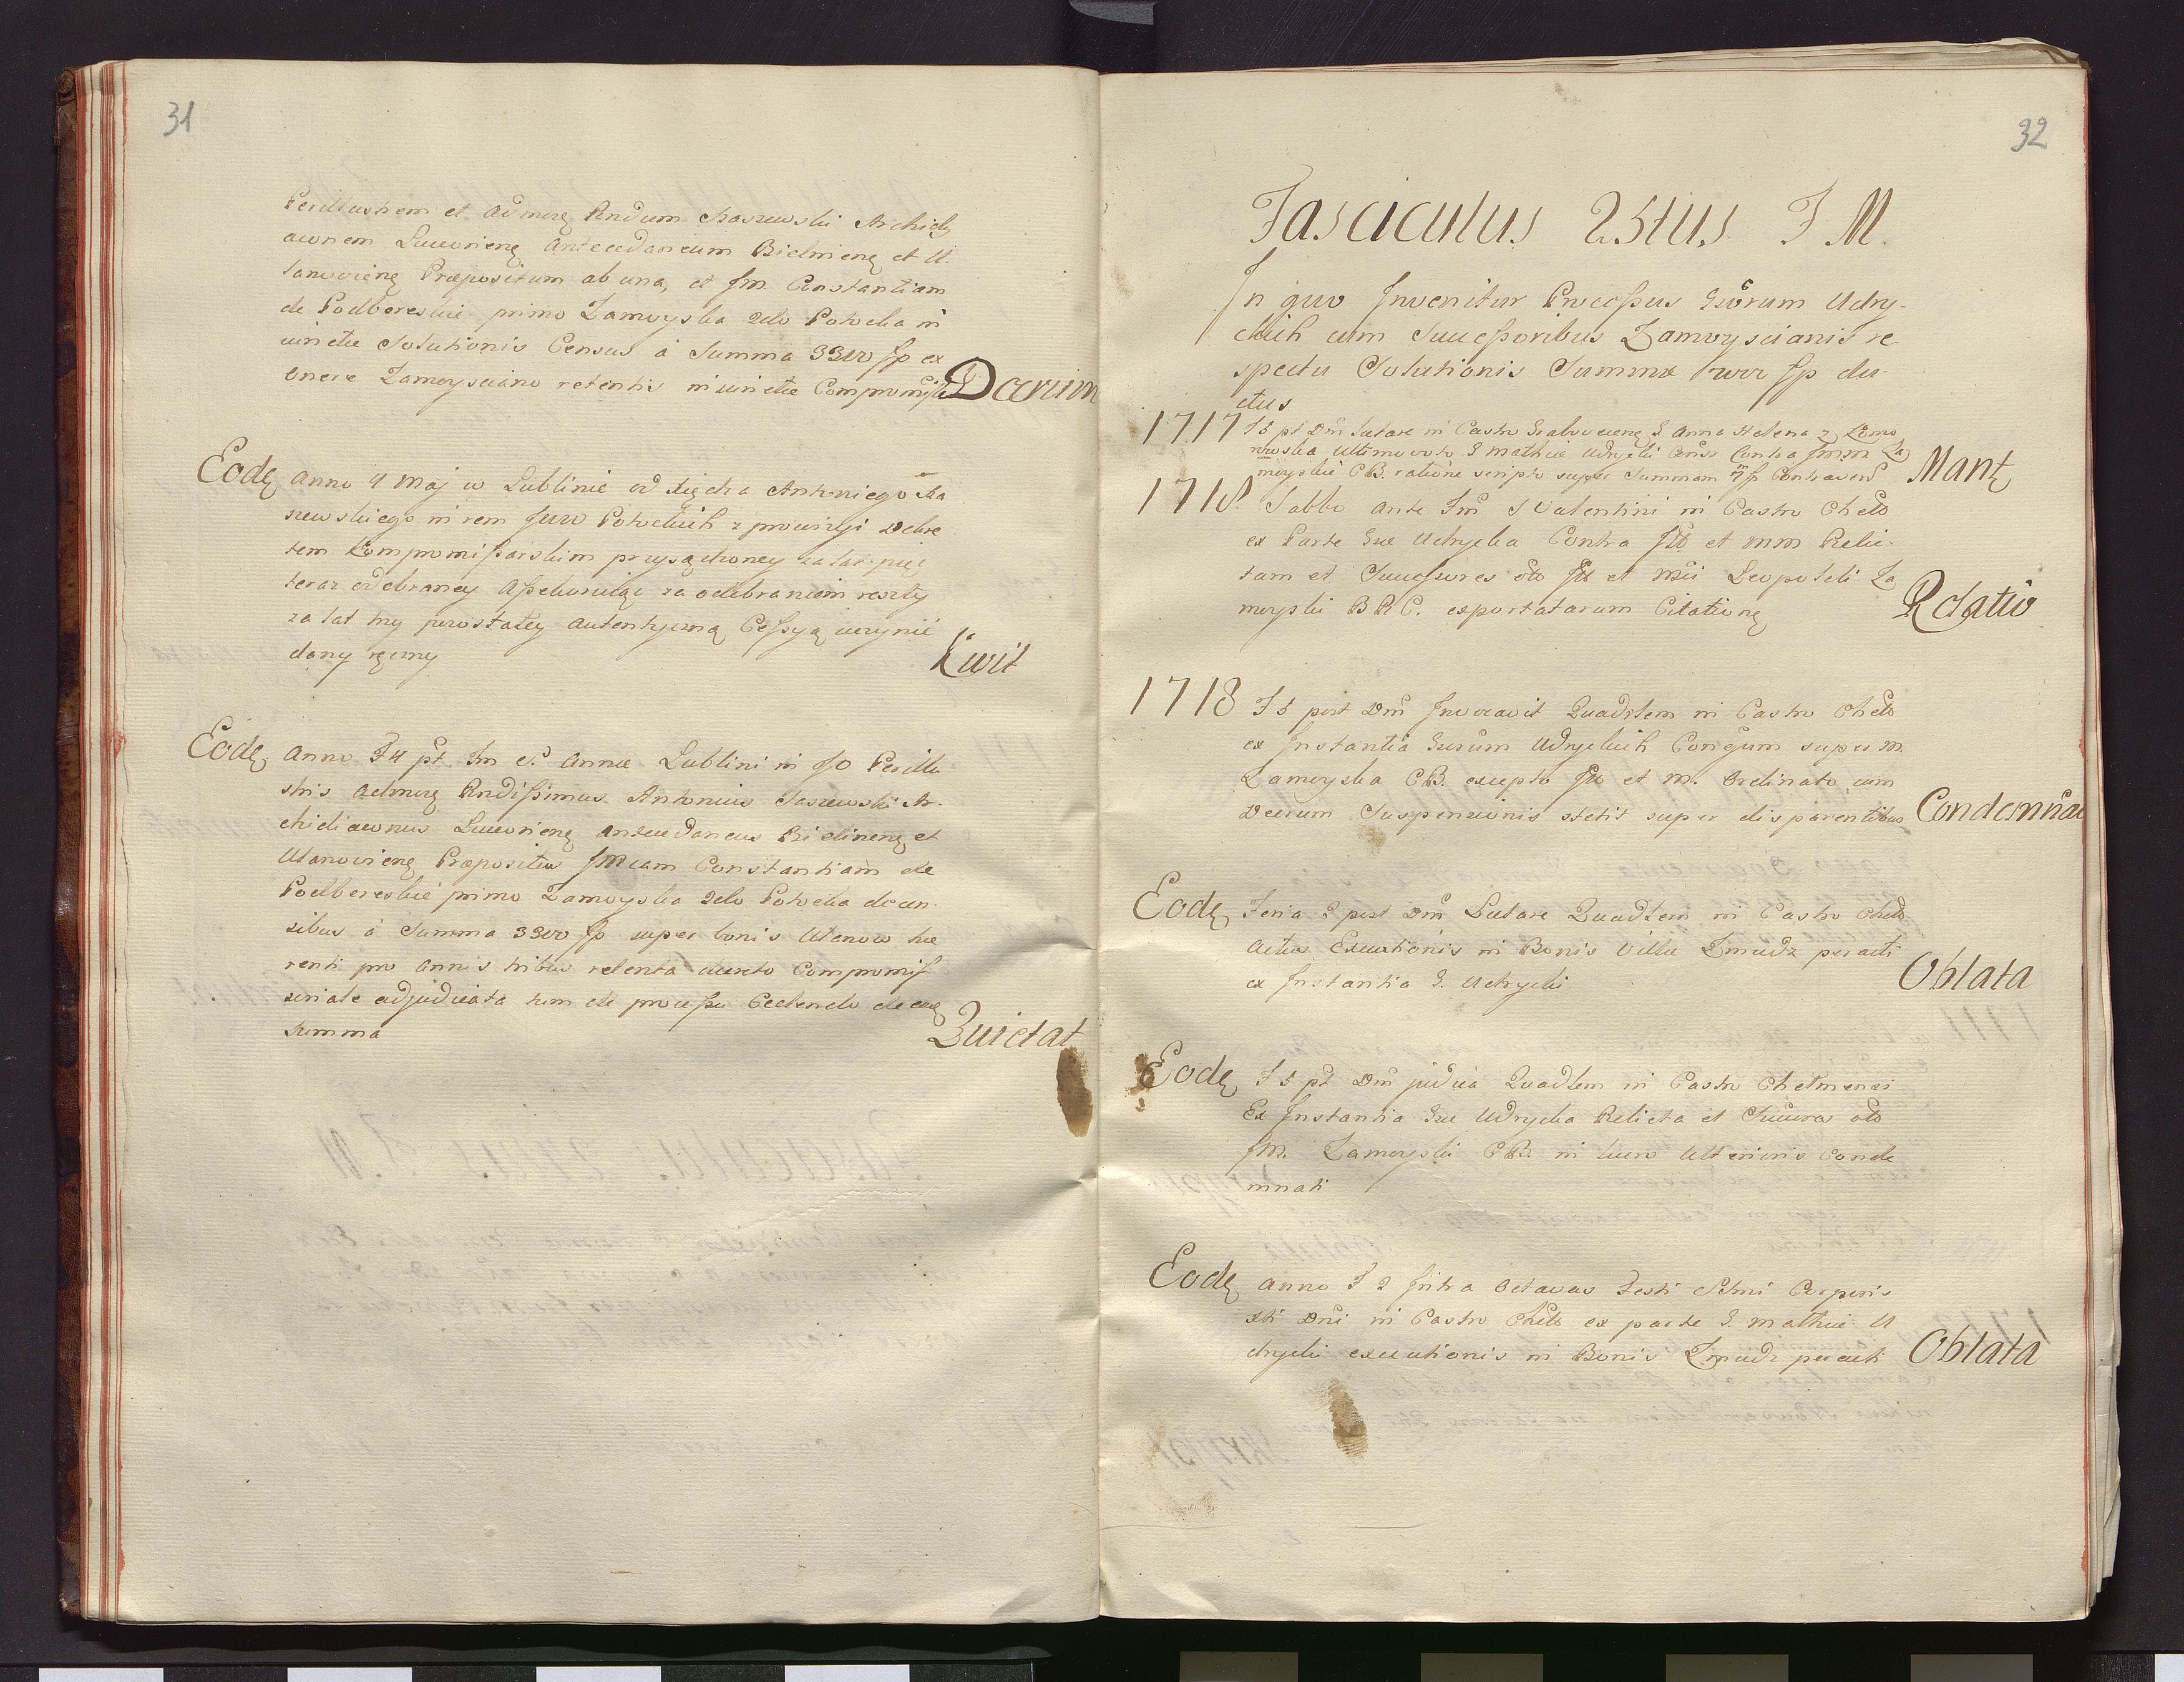 31
Perillustrem et admrę Rndum Staszewski Archidy
aconem Luceorienę Antecedaneum Bielinenę et U
tanovienę Præpositum ab una, et Jm Constantiam
de Podbereskie primo Zamoyska 2do Potocka in
iunctu Solutionis Census à Summa 3300 fp ex
onere Zamoysciano retentis in iunctu Compromiss Dcrum
Eodę Anno 4 Maj w Lublinie od Xiędza Antoniego Sta
szewskiego in rem Juw Potockich z prowizyi Dekre
tem Kompromissarskim przysądzoney za lat pięć
teraz odebraney assekuruiąc za odebraniem reszty
za lat trzy pozostałey autentyczną Cessyą uczynić
dany ręczny Kwit
Eodę Anno F 4 pt Fm S Annæ Lublini in Perillu
stris admrę Rndissimus Antonius Staszewski Ar
chidiaconus Luceorienę Antecedaneus Bielinenę et
Utanovienę Præpositus JMcam Constantiam de
Podbereskie primo Zamoyska 2do Potocka de cen
sibus à Summa 3300 fp super bonis Utanow hæ
renti pro annis tribus retenta decreto Compromiss
seriale adjudicata tum de processu Cedendo de eaę
summa Quictat
32
Fasciculus 25tus F M.
In quo Invenitur Processus Grorum Udry
ckich cum Successoribus Zamoyscianis re
spectu Solutionis Summæ 7000 fp du
ctus
1717 F 5 pt Dm Lætare in Castro Grabovecenę G Anna Helena z Komo
rowska ultimo voto G Mathiæ Udrycki Contra Jmm Za
moyskie CB. ratione scripti super Summam 7 fp Contraven Mantę
1718. Sabbo ante Fm S Valentini in Castro Chełm
ex Parte Græ Udrycka Contra Jll et mm Relic
tam et Successores olo Jll et mci Leopoldi Za
moyski B R C. exportatarum Citationę Relatio
1718 F 5 post Dm Invocavit Quadrlem in Castro Chełm
ex Instantia Grorum Udryckich Conjgum super m.
Zamoyska CB. excepto Jll et m. Ordinato cum
Decrum Suspensionis stetit super disparentibus Condemnat
Eodę Feria 2 post Dm Lætare Quadlem in Castro Chełm
Actus Executionis in Bonis Villæ Żmudz peracti
ex Instantia G. Udrycki Oblata
Eodę F 5 pt Dm judica Quadlem in Castro Chelmensi
Ex Instantia Græ Udrycka Relicta et Succra olo
JM. Zamoyski CB. in lucro ulterioris Conde
mnati
Eodę Anno F 2 Intra Octavas Festi Sstmi Corporis
Xti Dni in Castro Chełm ex parte G. Mathiæ U
drycki executionis in Bonis Żmudz peracti Oblata